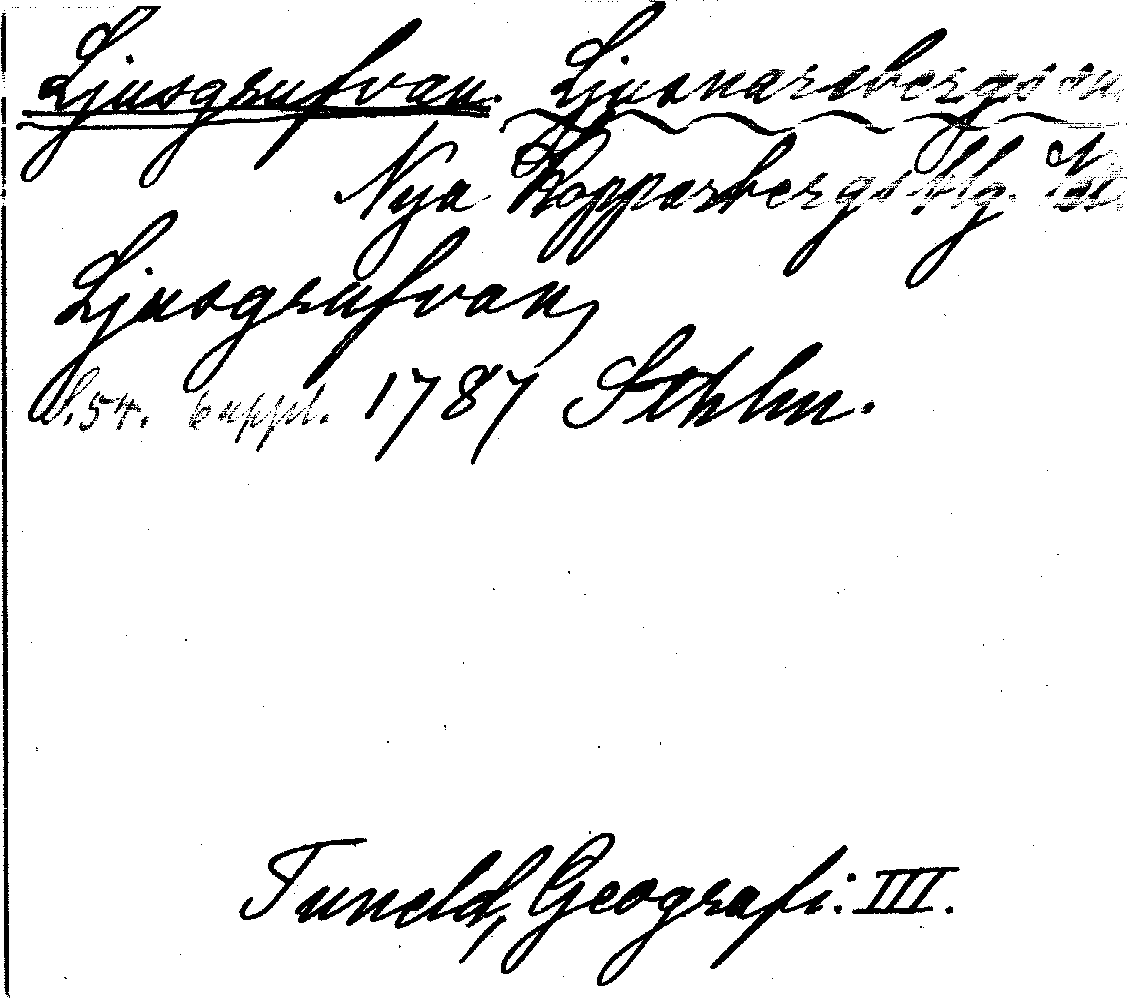 Ljusgrufvan. Ljusnarsbergs
Nya Kopparbergs blg.
Ljusgrufvan,
S. 54. suppl. 1787 Sthlm.
Tuneld, Geografi. III.